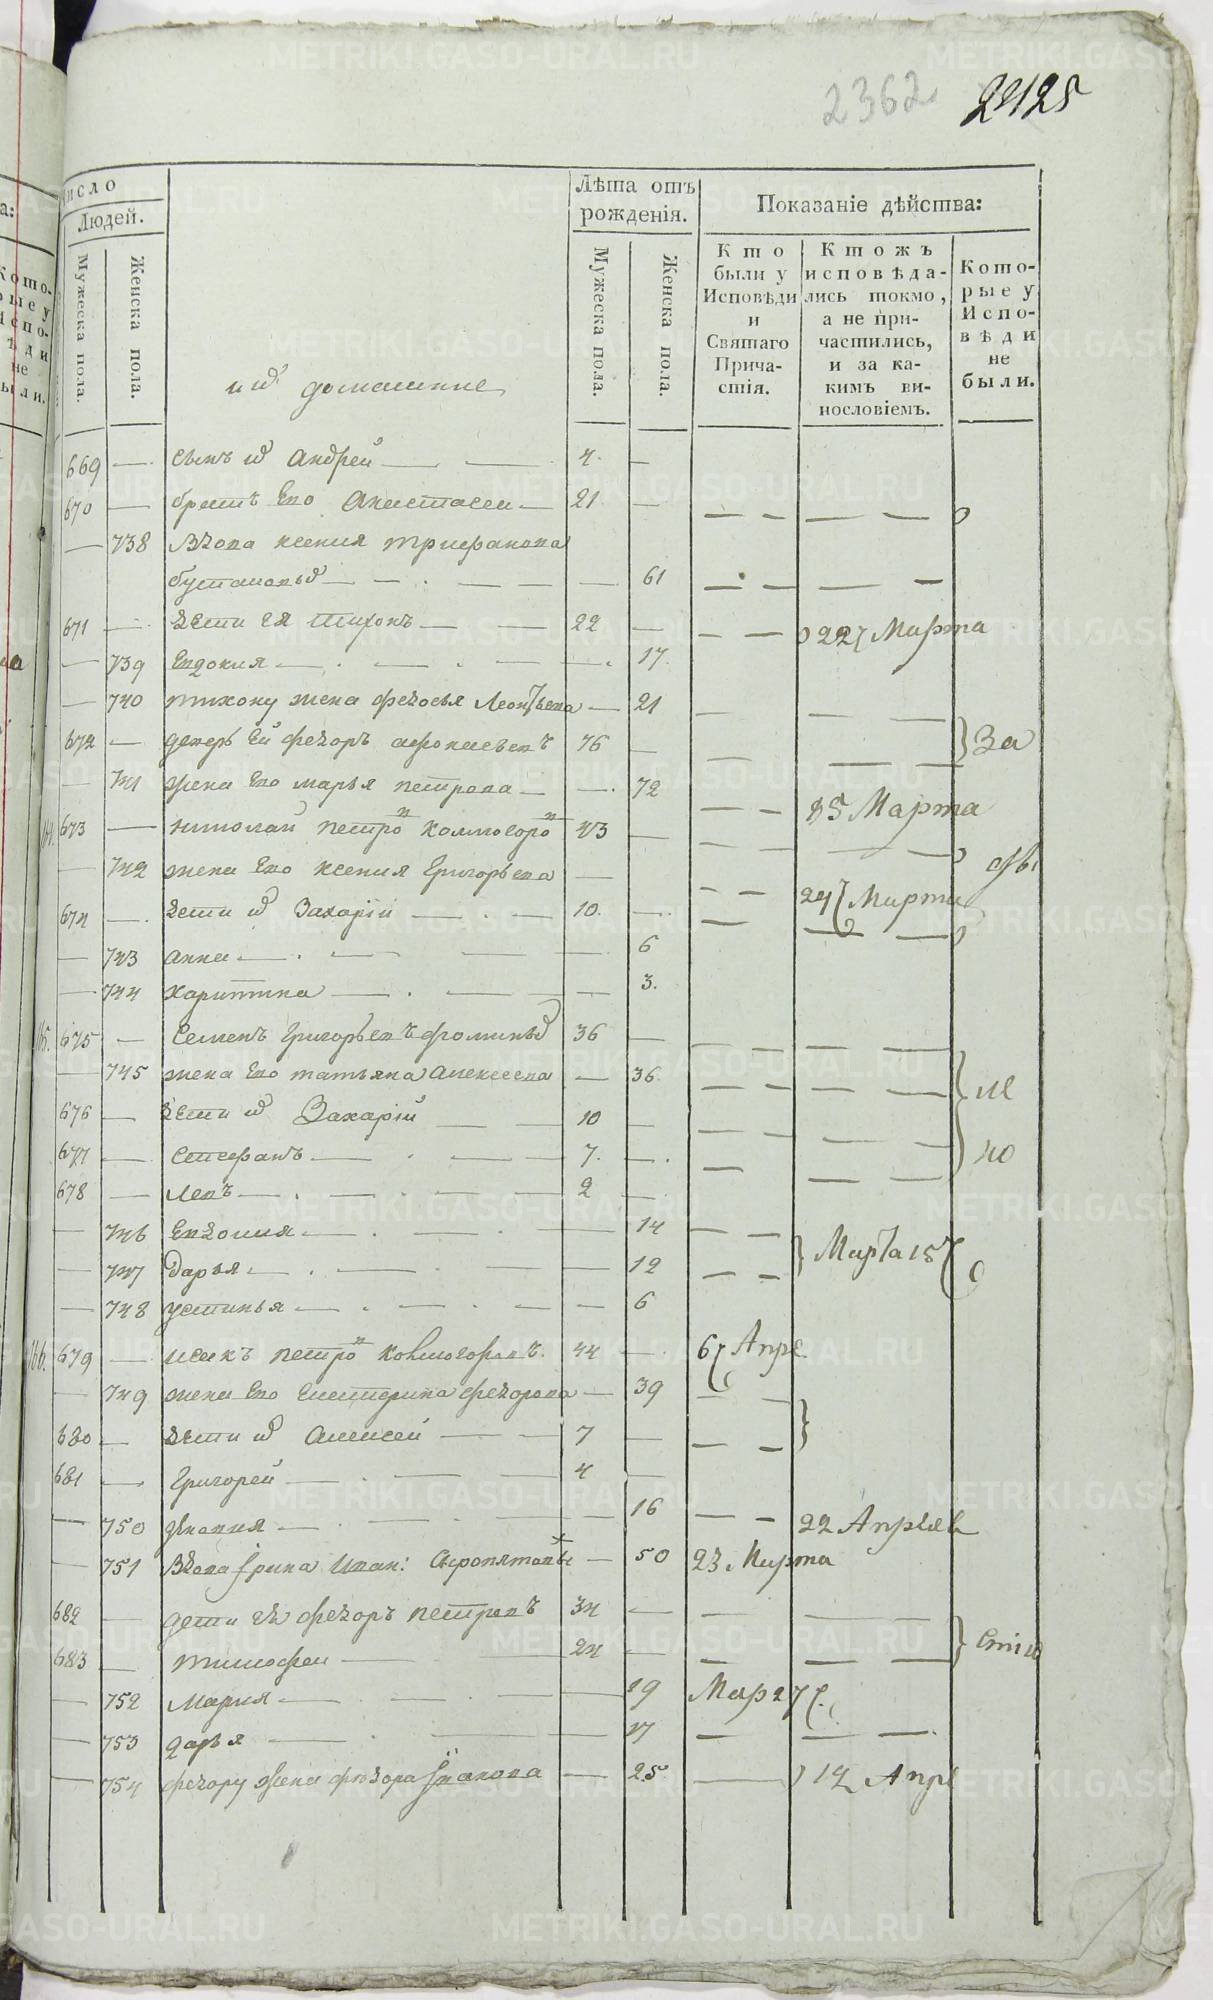 2362 2425
Число
Людей.
Лѣта отъ рожденія.
Показаніе дѣйства:
Мужеска пола.
Женска пола.
Мужеска пола.
Женска пола.
Кто были у Исповѣди и Святаго Причастія.
Ктожъ исповѣдались токмо, а не причастились, и за какимъ винословіемъ.
Которые у Исповѣди не были.
ихъ домашние
669 — сынъ их Андрей — — 4 —
670 — братъ Его Анастасеи — 21 —
— 738 Вдова ксения трифанова
— 61
671 — дети ея тихонъ — — 22 — 27 Марта
— 739 Евдокия — — 17
— 740 тихону жена федосья Леонтьева — 21
672 — деверь Ей федоръ афонасьевъ 76 — За
— 741 жена Его марья петрова — 72
15 Марта
164. 673 — николаи петров колмогоров 43 —
— 742 жена Его ксения Григорьева —
24 Марта
674 — дети их Захарiй — 10. —
— 743 анна — — 6
— 744 харитина — — 3.
165. 675 — Семенъ Григорьевъ фоминых 36 —
— 745 жена Его татьяна алексеева — 36
676 — дети их Захарiй — 10 —
677 — Стефанъ — 7. —
678 — Левъ — 2 —
— 746 Евдокия — — 14
Марта 15
— 747 дарья — — 12
— 748 устинья — — 6
166. 679 — исакъ петров колмогоровъ. 44 — 6 Апре
— 749 жена Его Екатерина федорова — 39
680 — дети их Алексей — 7 —
681 — Григорей — 4 —
— 750 — 16 22 Апреля
— 751 Вдова Ирина Иван: — 50 23 Марта
682 — дети ея федоръ петровъ 34 —
683 — тимофеи — 24 —
— 752 Мария — — 19 Мар 27
— 753 дарья — — 17
— 754 федору жена федора — 25 12 Апре